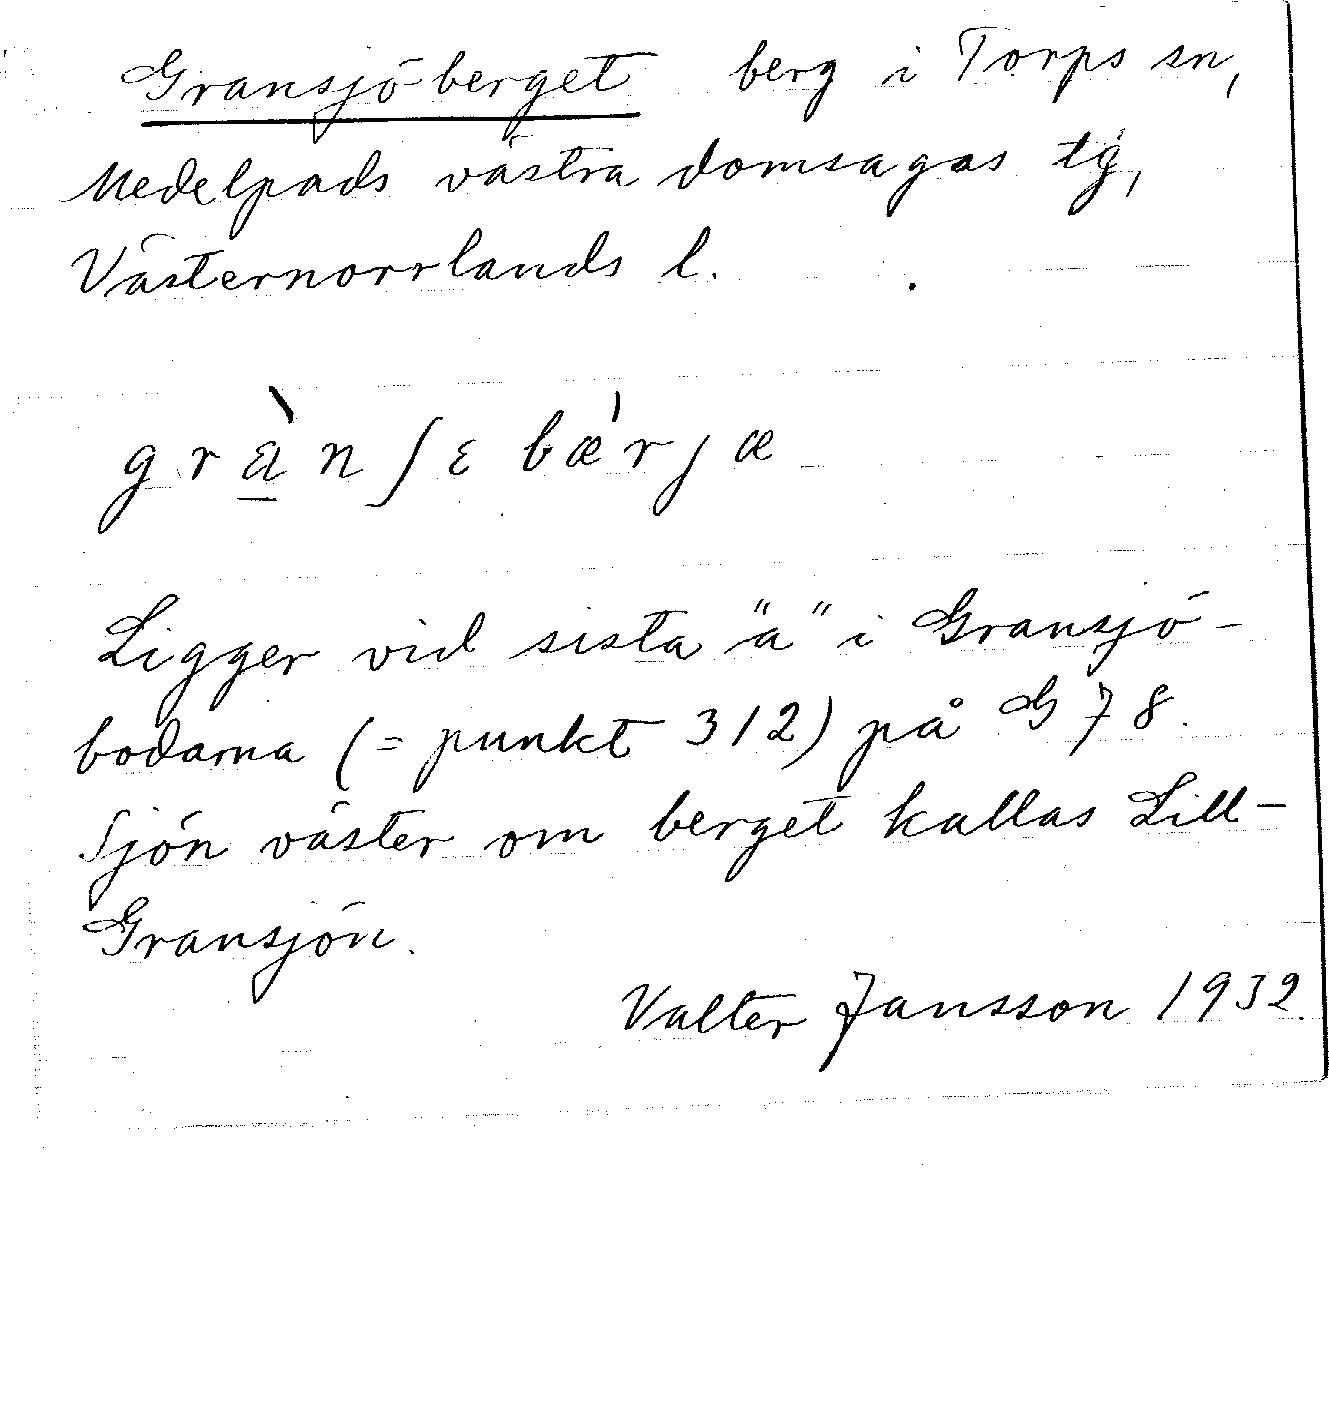 Gransjöberget berg i Torps sn,
Medelpads västra domsagas tg,
Västernorrlands l.
grà̱nʃɛbæ̍rjæ
Ligger vid sista "a" i Gransjö-
bodarna (= punkt 312) på G 78.
Sjön väster om berget kallas Lill-
Gransjön.
Valter Jansson 1932.